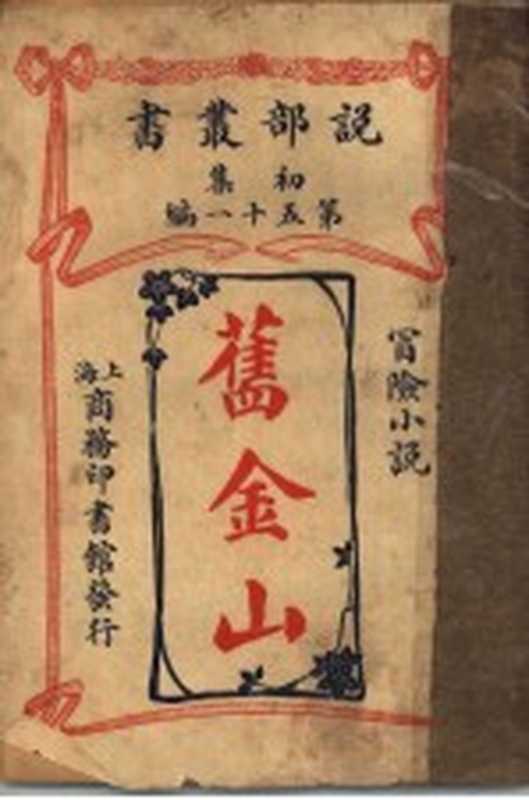 説部叢書
初集
第五十一編
冒險小説
舊金山
上海商務印書館發行